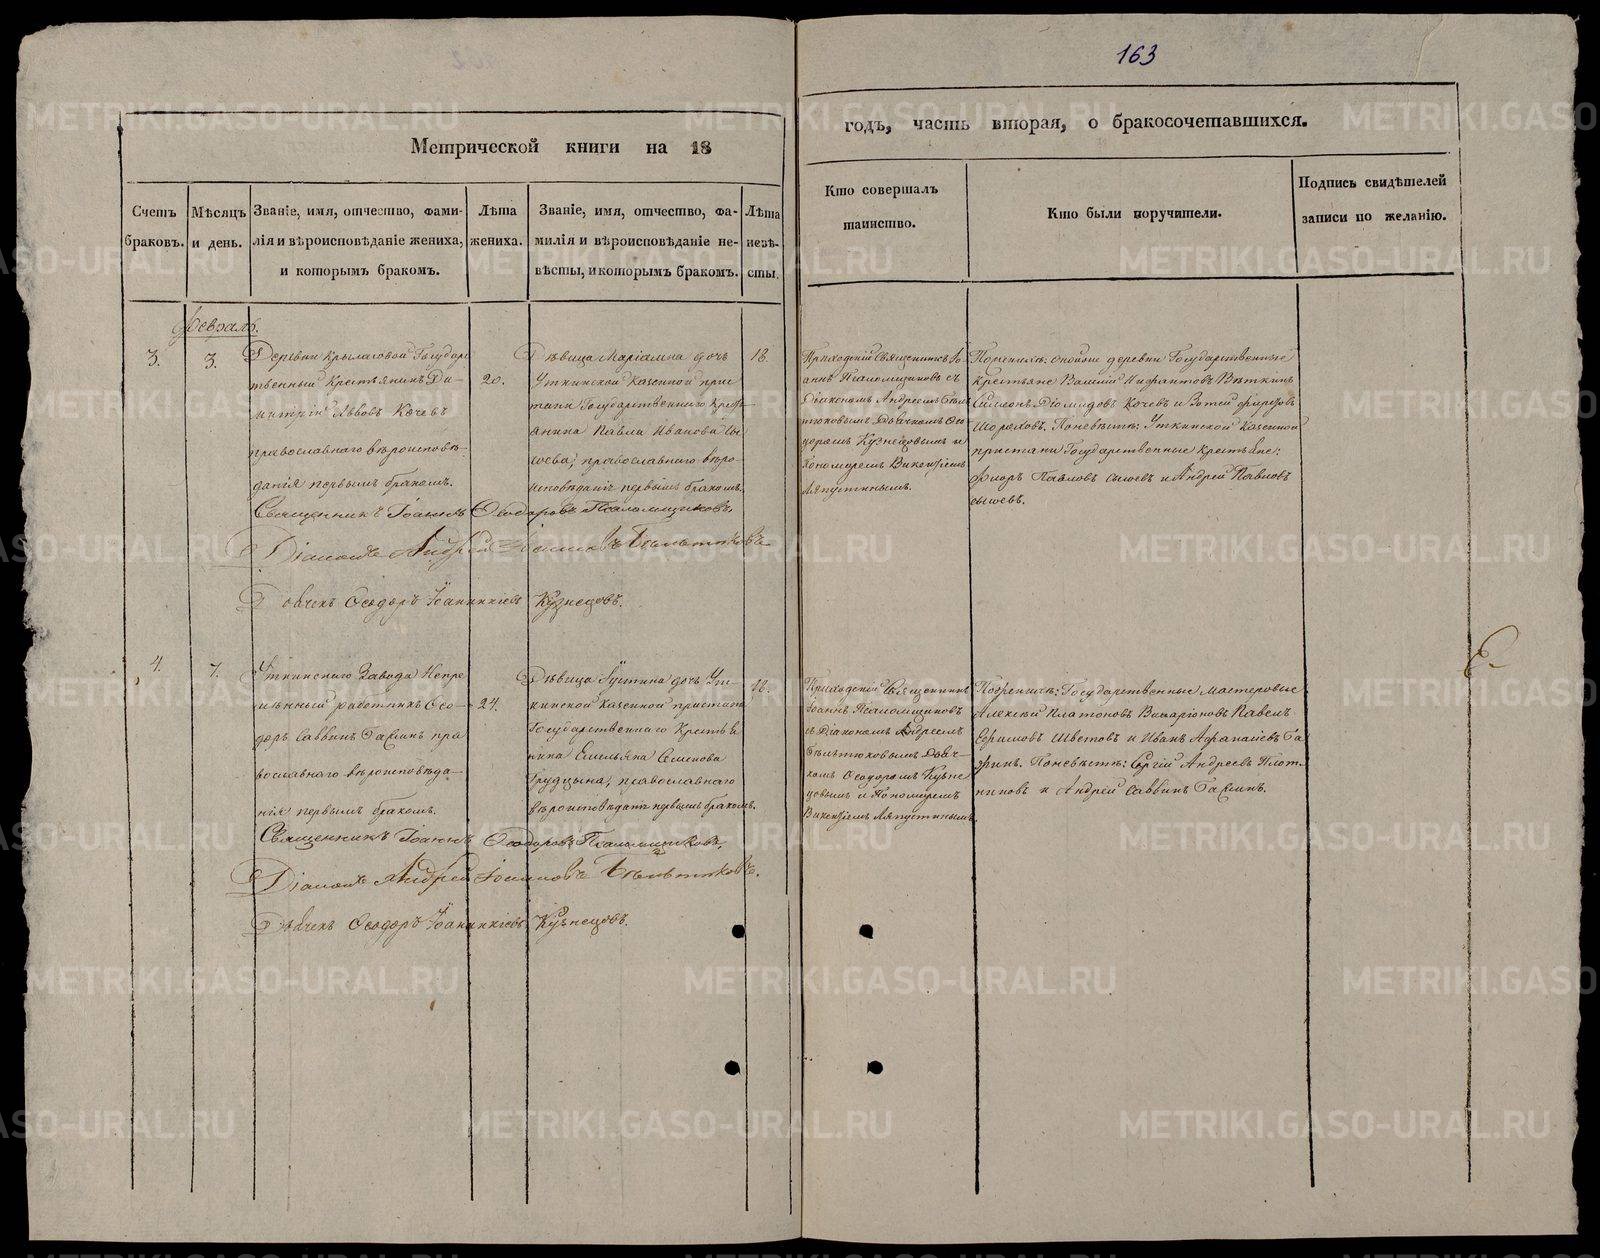 163
Метрической книги на 18
годъ, часть вторая, о бракосочетавшихся.
Счетъ браковъ.
Мѣсяцъ и день.
Званіе, имя, отчество, фами-
лія и вѣроисповѣданіе жениха,
и которымъ бракомъ.
Лѣта
жениха.
Званіе, имя, отчество, фа-
милія и вѣроисповѣданіе не-
вѣсты, и которымъ бракомъ.
Лѣта
невѣ-
сты.
Кто совершалъ
таинство.
Кто были поручители.
Подпись свидѣтелей
записи по желанію.
Февраль.
3.
3.
Деревни Крылатовой Государ
ственный Крестьянинъ Ди-
митрій Львовъ Кочевъ
православнаго вѣроисповѣ-
данія первымъ бракомъ.
20.
Дѣвица Маріамна дочь
Уткинской Казенной прис
тани Государственнаго Крест
янина Павла Иванова Сы
соева, православнаго вѣро-
исповѣданія первымъ бракомъ.
18.
Приходскій Священникъ Іо-
аннъ Псаломщиковъ съ
Діакономъ Андреемъ Бѣль
тюковымъ Дьячкомъ Ѳео
доромъ Кузнецовымъ и
Пономаремъ Викентіемъ
Ляпустинымъ.
Поженихѣ: оной же деревни Государственные
Крестьяне Василій Нифантовъ Вяткинъ
Симеонъ Діомидовъ Кочевъ и
Поневѣстѣ: Уткинской Казенной
пристани Государственные Крестьяне:
Флоръ Павловъ Сысоевъ и Андрей Павловъ
Сысоевъ.
Священникъ Іоаннъ Ѳеодоровъ Псаломщиковъ.
Діаконъ Андрей Іоанновъ Бѣльтюковъ
Дьячекъ Ѳеодоръ Іоанникіевъ Кузнецовъ.
4.
7.
Уткинскаго Завода Непре
мѣнный работникъ Ѳео-
доръ Саввинъ Гаринъ пра
вославнаго вѣроисповѣда-
нія первымъ бракомъ.
24.
Дѣвица Іустина дочь Ут-
кинской Казенной пристани
Государственнаго Крестья
нина Емельяна Семенова
Грудцына, православнаго
вѣроисповѣданія первымъ бракомъ.
18.
Приходскій Священникъ
Іоаннъ Псаломщиковъ
съ Діакономъ Андреемъ
Бѣльтюковымъ Дьяч-
комъ Ѳеодоромъ Кузне
цовымъ и Пономаремъ
Викентіемъ Ляпустинымъ
Поженихѣ: Государственные мастеровые
Алексій Платоновъ Виларіоновъ Павелъ
Ефимовъ Швецовъ и Иванъ Афанасіевъ Га
ринъ. Поневѣстѣ: Сергій Андреевъ Плот-
никовъ и Андрей Саввинъ Гаринъ.
Священникъ Іоаннъ Ѳеодоровъ Псаломщиковъ.
Діаконъ Андрей Іоанновъ Бѣльтюковъ.
Дьячекъ Ѳеодоръ Іоанникіевъ Кузнецовъ.
METRIKI.GASO-URAL.RU